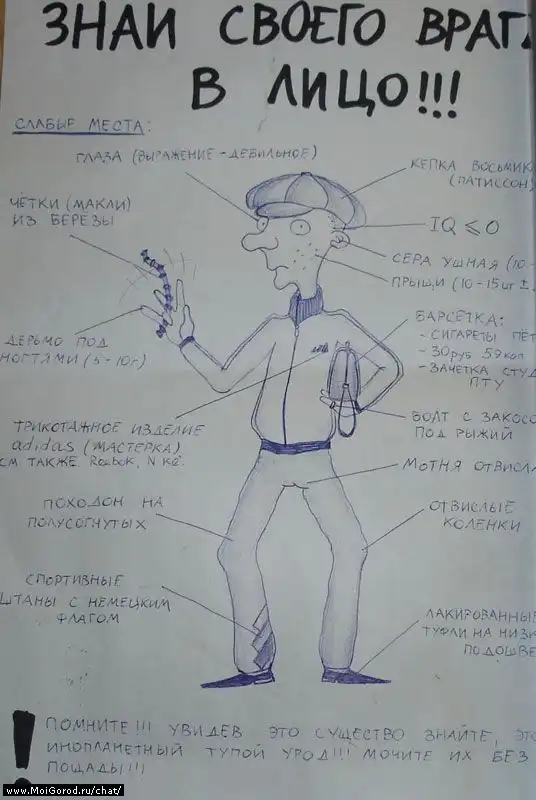 ЗНАЙ СВОЕГО ВРАГА
В ЛИЦО!!!
СЛАБЫЕ МЕСТА:
ГЛАЗА (ВЫРАЖЕНИЕ - ДЕБИЛЬНОЕ)
КЕПКА ВОСЬМИК
(ПАТИССОН)
ЧЁТКИ (МАКЛИ)
ИЗ БЕРЕЗЫ
IQ ⩽ 0
СЕРА УШНАЯ (10-
ПРЫЩИ (10-15 шт ±
БАРСЕТКА:
- СИГАРЕТЫ ПЁТ
- 30 руб 59 коп
- ЗАЧЕТКА СТУД
ПТУ
ДЕРЬМО ПОД
НОГТЯМИ (5-10г)
ТРИКОТАЖНОЕ ИЗДЕЛИЕ
adidas (МАСТЕРКА)
СМ ТАКЖЕ Reebok, N Ke.
БОЛТ С ЗАКОСО
ПОД РЫЖИЙ
МОТНЯ ОТВИСЛА
ПОХОДОН НА
ПОЛУСОГНУТЫХ
ОТВИСЛЫЕ
КОЛЕНКИ
СПОРТИВНЫЕ
ШТАНЫ С НЕМЕЦКИМ
ФЛАГОМ
ЛАКИРОВАННЫЕ
ТУФЛИ НА НИЗК
ПОДОШВЕ
! ПОМНИТЕ!!! УВИДЕВ ЭТО СУЩЕСТВО ЗНАЙТЕ, ЭТО
ИНОПЛАНЕТНЫЙ ТУПОЙ УРОД!!! МОЧИТЕ ИХ БЕЗ
ПОЩАДЫ!!!
www.MoiGorod.ru/chat/